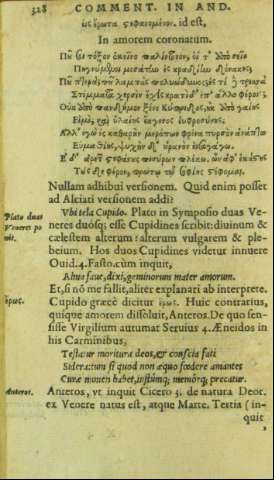 328 COMMENT. IN AND.
εἰς ἔρωτα ἐστεφανωμένον. id est,
In amorem coronatum.
Ποῦ σοι τόξον ἐκεῖνο παλίντονον, οἵ τ' ἀπὸ σεῖο
Πηγνύμενοι μεσάτην ἐς κραδίην δόνακες;
Ποῦ πτερά; ποῦ λαμπὰς πολυώδυνος; ἐς τί δὲ τρισσὰ
Στέμματα χερσὶν ἔχεις κρατὶ δ' ἐπ' ἄλλο φέρεις;
Οὐκ ἀπὸ πανδήμου ξεῖνε Κύπριδος, οὐκ ἀπὸ γαίης
Εἰμὶ, καὶ ὑλαίης ἔκγονος εὐφροσύνης.
Ἀλλ' ἐγὼ ἐς καθαρὴν μερόπων φρένα πυρσὸν ἀνάπτω
Εὐμαθίης, ψυχὴν δ' οὐρανὸν εἰσανάγω.
Ἐκ δ' ἀρετῶν στεφάνους πισύρων πλέκω, ὧν ἀφ' ἑκάστης
Τούσδε φέρων, πρώτῳ τῷ σοφίης στέφομαι.
Nullam adhibui versionem. Quid enim posset
ad Alciati versionem addi?
Vbi tela Cupido. Plato in Symposio duas Ve-
Plato duas Veneres po nit.
neres duósq; esse Cupidines scribit: diuinum &
cælestem alterum: alterum vulgarem & ple-
beium. Hos duos Cupidines videtur innuere
Ouid. 4. Fasto. cùm inquit,
Alma faue, dixi, geminorum mater amorum.
Et, si nõ me fallit, aliter explanari ab interprete.
ἔρως.
Cupido græcè dicitur ἔρως. Huic contrarius,
quique amorem dissoluit, Anteros. De quo sen-
sisse Virgilium autumat Seruius 4. Æneidos in
his Carminibus,
Testatur moritura deos, & conscia fati
Sidera: tum si quod non æquo fœdere amantes
Curæ numen habet, iustúmq; memórq; precatur.
Anteros.
Anteros, vt inquit Cicero 3. de natura Deor.
ex Venere natus est, atque Marte. Tertia (in-
quit